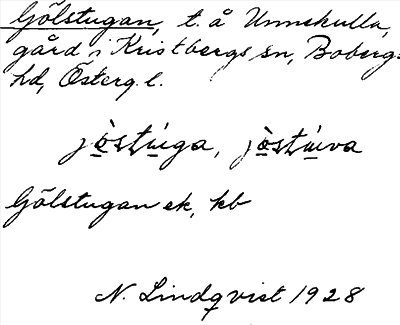 Gölstugan, t. å Unnekulla,
gård i Kristbergs sn, Bobergs
hd, Österg. l.
jȯ̱stu̱̇ga, jȯ̱stu̱̇va
Gölstugan ek, kb
N. Lindqvist 1928